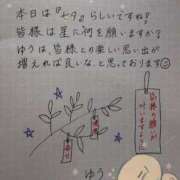 本日は『七夕』らしいですね♪
皆様は星に何を願いますか？
ゆうは、皆様との楽しい思い出が
増えれば良いな、と思っております☺
皆様の願いが
叶いますように
ゆう